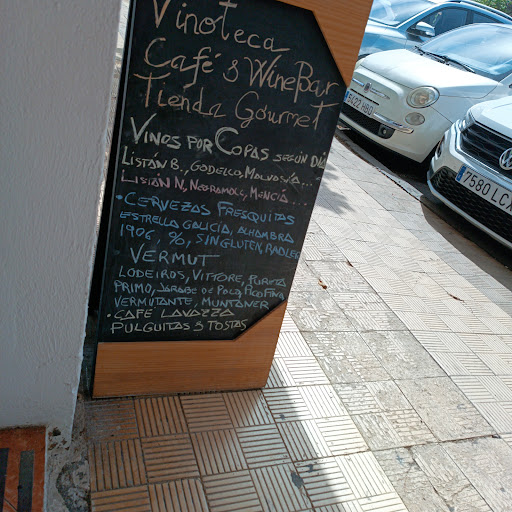 Vinoteca
Café & WineBar
Tienda Gourmet
Vinos por Copas según Día
Listán B., Godello, Malvasía...
Listán N, Negramoll, Mencía...
• Cervezas Fresquitas
Estrella Galicia, Alhambra
1906, %, Sin Gluten, Radler
• Vermut
Lodeiros, Vittore,
Primo, Jarabe de Palo,
Vermutante, Muntaner
• Café Lavazza
Pulguitas y Tostas
7422 HBD
7580 LC